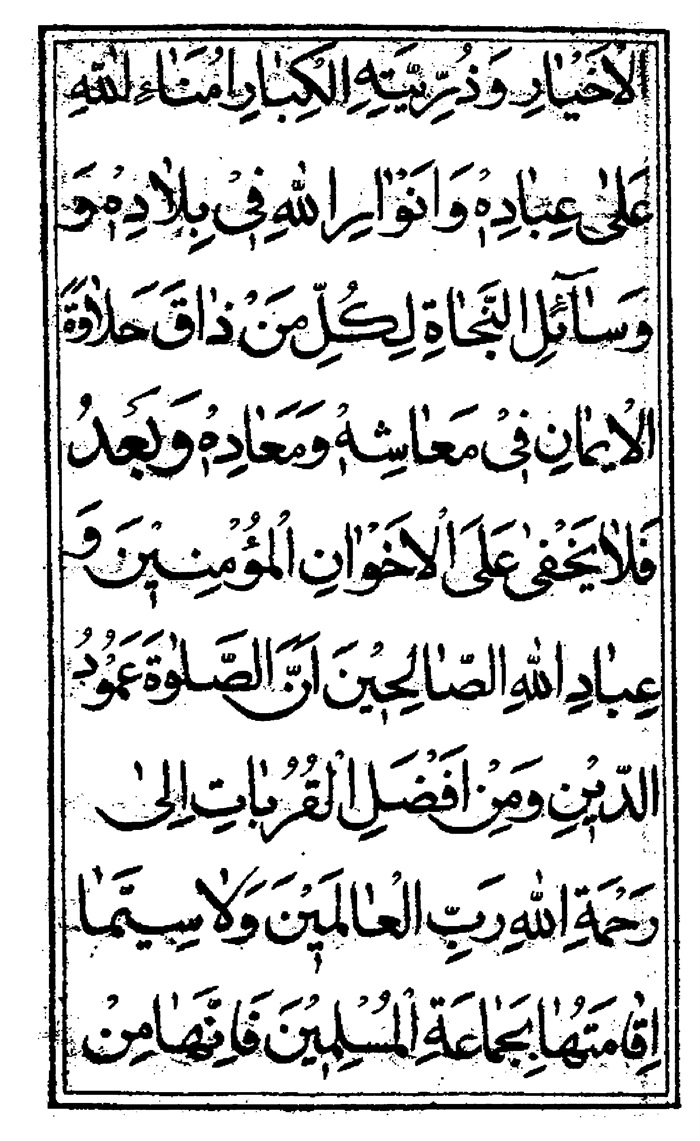 الْاَخْیٰارِ وَ ذُرِّیَّتِهِ الْکِبٰارِ اُمَنٰاءِ اللّٰهِ
عَلیٰ عِبٰادِهٖ وَ اَنْوٰارِ اللّٰهِ فِیْ بِلٰادِهٖ وَ
وَسٰآئِلِ النَّجٰاةِ لِکُلِّ مَنْ ذٰاقَ حَلٰاوَةَ
الْاِیمٰانِ فِیْ مَعٰاشِهٖ وَ مَعٰادِهٖ وَ بَعْدُ
فَلٰا یَخْفیٰ عَلَی الْاَخْوٰانِ الْمُؤْمِنِیْنَ وَ
عِبٰادِ اللّٰهِ الصّٰالِحِیْنَ اَنَّ الصَّلٰوةَ عَمُوْدُ
الدِّیْنِ وَ مِنْ اَفْضَلِ الْقُرُبٰاتِ اِلیٰ
رَحْمَةِ اللّٰهِ رَبِّ الْعٰالَمِیْنَ وَ لٰا سِیَّمٰا
اِقٰامَتَهٰا بِجَمٰاعَةِ الْمُسْلِمِیْنَ فَاِنَّهٰا مِنْ